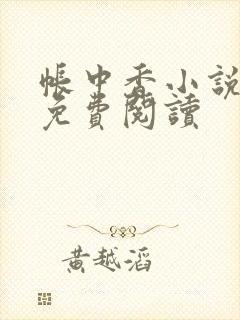 帳中香小說
免費閱讀
黃越滔